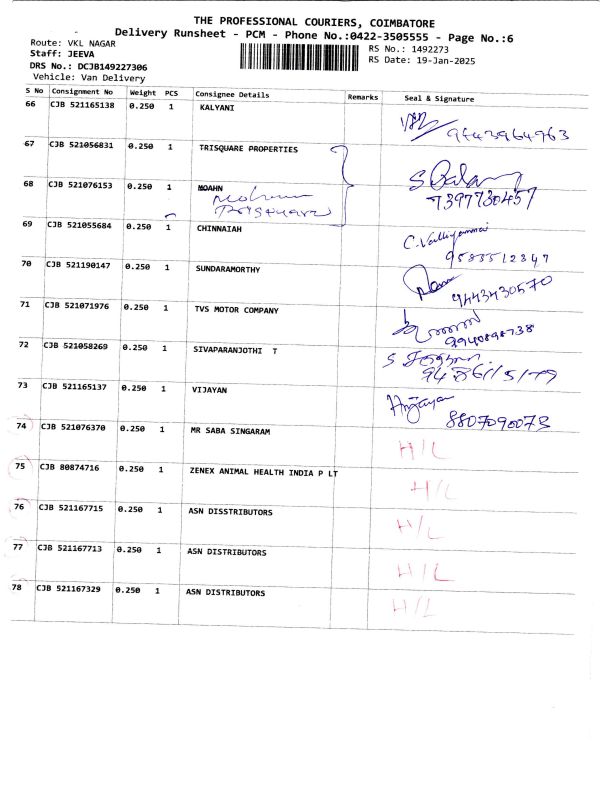 THE PROFESSIONAL COURIERS, COIMBATORE
Delivery Runsheet - PCM - Phone No.:0422-3505555 - Page No.:6
Route: VKL NAGAR
RS No.: 1492273
Staff: JEEVA
RS Date: 19-Jan-2025
DRS No.: DCJB149227306
Vehicle: Van Delivery
S No Consignment No Weight PCS Consignee Details Remarks Seal & Signature
66 CJB 521165138 0.250 1 KALYANI
9443964963
67 CJB 521056831 0.250 1 TRISQUARE PROPERTIES
68 CJB 521076153 0.250 1 MOAHN
7397730457
69 CJB 521055684 0.250 1 CHINNAIAH C. Valliyammai
9583512347
70 CJB 521190147 0.250 1 SUNDARAMORTHY
9443430570
71 CJB 521071976 0.250 1 TVS MOTOR COMPANY
72 CJB 521058269 0.250 1 SIVAPARANJOTHI T
73 CJB 521165137 0.250 1 VIJAYAN
8807090073
74 CJB 521076370 0.250 1 MR SABA SINGARAM H/L
75 CJB 80874716 0.250 1 ZENEX ANIMAL HEALTH INDIA P LT H/L
76 CJB 521167715 0.250 1 ASN DISSTRIBUTORS H/L
77 CJB 521167713 0.250 1 ASN DISTRIBUTORS H/L
78 CJB 521167329 0.250 1 ASN DISTRIBUTORS H/L